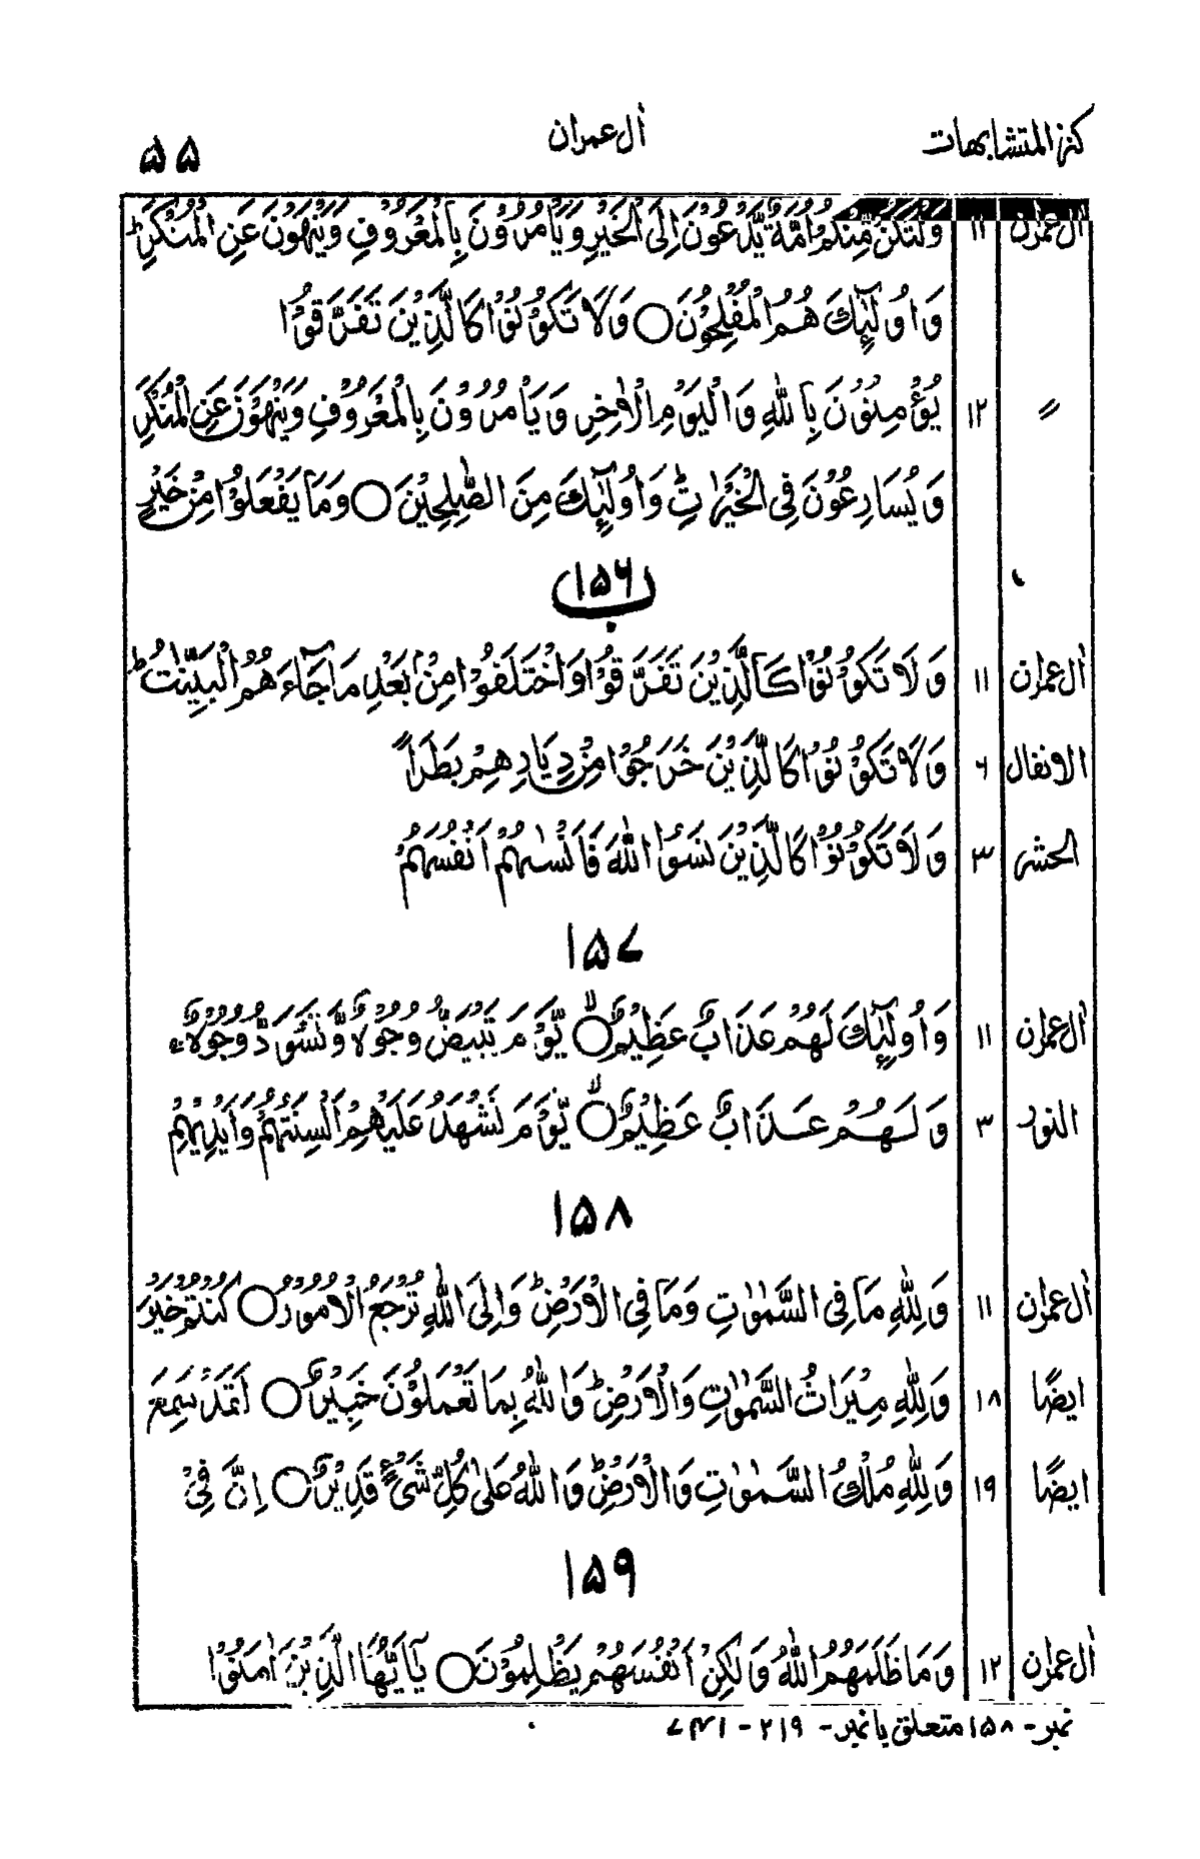 كنز المتشابهات اٰل عمران ۵۵
اٰل عمرٰن ۱۱ وَلْتَكُنْ مِّنْكُمْ اُمَّةٌ يَّدْعُوْنَ اِلَى الْخَيْرِ وَيَاْمُرُوْنَ بِالْمَعْرُوْفِ وَيَنْهَوْنَ عَنِ الْمُنْكَرِؕ
وَاُولٰٓئِكَ هُمُ الْمُفْلِحُوْنَ ○ وَلَا تَكُوْنُوْا كَالَّذِيْنَ تَفَرَّقُوْا
〃 ۱۲ يُؤْمِنُوْنَ بِاللّٰهِ وَالْيَوْمِ الْاٰخِرِ وَيَاْمُرُوْنَ بِالْمَعْرُوْفِ وَيَنْهَوْنَ عَنِ الْمُنْكَرِ
وَيُسَارِعُوْنَ فِى الْخَيْرٰتِؕ وَاُولٰٓئِكَ مِنَ الصّٰلِحِيْنَ ○ وَمَا يَفْعَلُوْا مِنْ خَيْرٍ
ب ۱۵۶
اٰل عمرٰن ۱۱ وَلَا تَكُوْنُوْا كَالَّذِيْنَ تَفَرَّقُوْا وَاخْتَلَفُوْا مِنْۢ بَعْدِ مَا جَآءَهُمُ الْبَيِّنٰتُؕ
الانفال ۶ وَلَا تَكُوْنُوْا كَالَّذِيْنَ خَرَجُوْا مِنْ دِيَارِهِمْ بَطَرًا
الحشر ۳ وَلَا تَكُوْنُوْا كَالَّذِيْنَ نَسَوُا اللّٰهَ فَاَنْسٰىهُمْ اَنْفُسَهُمْ
۱۵۷
اٰل عمرٰن ۱۱ وَاُولٰٓئِكَ لَهُمْ عَذَابٌ عَظِيْمٌ ○ يَّوْمَ تَبْيَضُّ وُجُوْهٌ وَّتَسْوَدُّ وُجُوْهٌ
النور ۳ وَلَهُمْ عَذَابٌ عَظِيْمٌ ○ يَّوْمَ تَشْهَدُ عَلَيْهِمْ اَلْسِنَتُهُمْ وَاَيْدِيْهِمْ
۱۵۸
اٰل عمرٰن ۱۱ وَلِلّٰهِ مَا فِى السَّمٰوٰتِ وَمَا فِى الْاَرْضِؕ وَاِلَى اللّٰهِ تُرْجَعُ الْاُمُوْرُ ○ كُنْتُمْ خَيْرَ
ايضًا ۱۸ وَلِلّٰهِ مِيْرَاثُ السَّمٰوٰتِ وَالْاَرْضِؕ وَاللّٰهُ بِمَا تَعْمَلُوْنَ خَبِيْرٌ ○ لَقَدْ سَمِعَ
ايضًا ۱۹ وَلِلّٰهِ مُلْكُ السَّمٰوٰتِ وَالْاَرْضِؕ وَاللّٰهُ عَلٰى كُلِّ شَىْءٍ قَدِيْرٌ ○ اِنَّ فِىْ
۱۵۹
اٰل عمرٰن ۱۲ وَمَا ظَلَمَهُمُ اللّٰهُ وَلٰكِنْ اَنْفُسَهُمْ يَظْلِمُوْنَ ○ يٰٓاَيُّهَا الَّذِيْنَ اٰمَنُوْا
نمبر - ۱۵۸ متعلق با نمبر - ۲۱۹ - ۷۴۱